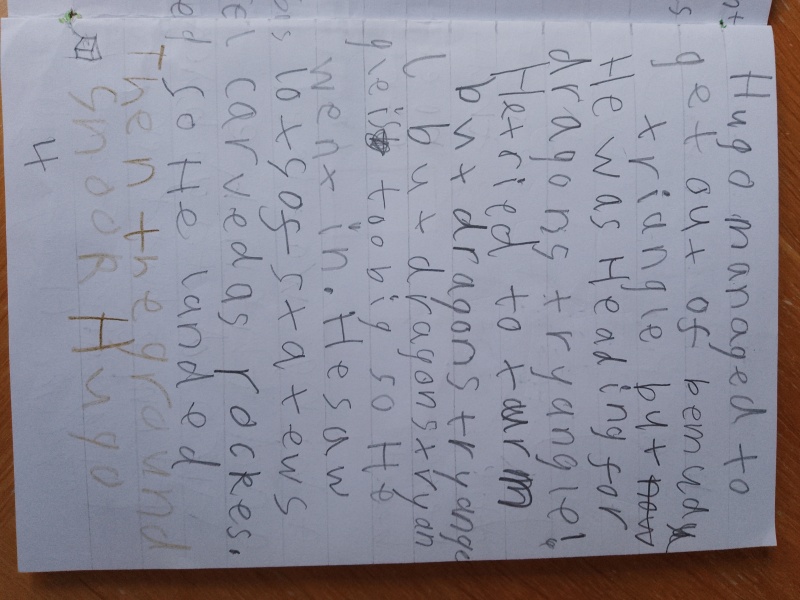 Hugo managed to
get out of bemuda
triangle but now
He was Heading for
dragons tryangle!
He tried to turn
but dragons tryange
l but dragons tryan
gleis too big so He
went in. He saw
lots of statews
carved as rockes.
so He landed
Then the ground
shook Hugo
4